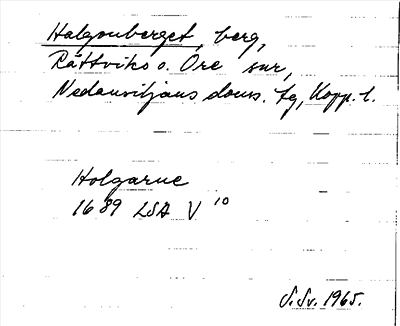 Holgonberget, berg,
Rättviks o. Ore snr,
Nedansiljans doms. tg, Kopp. l.
Holgarne
1689 LSA V 10
S.Sv. 1965.